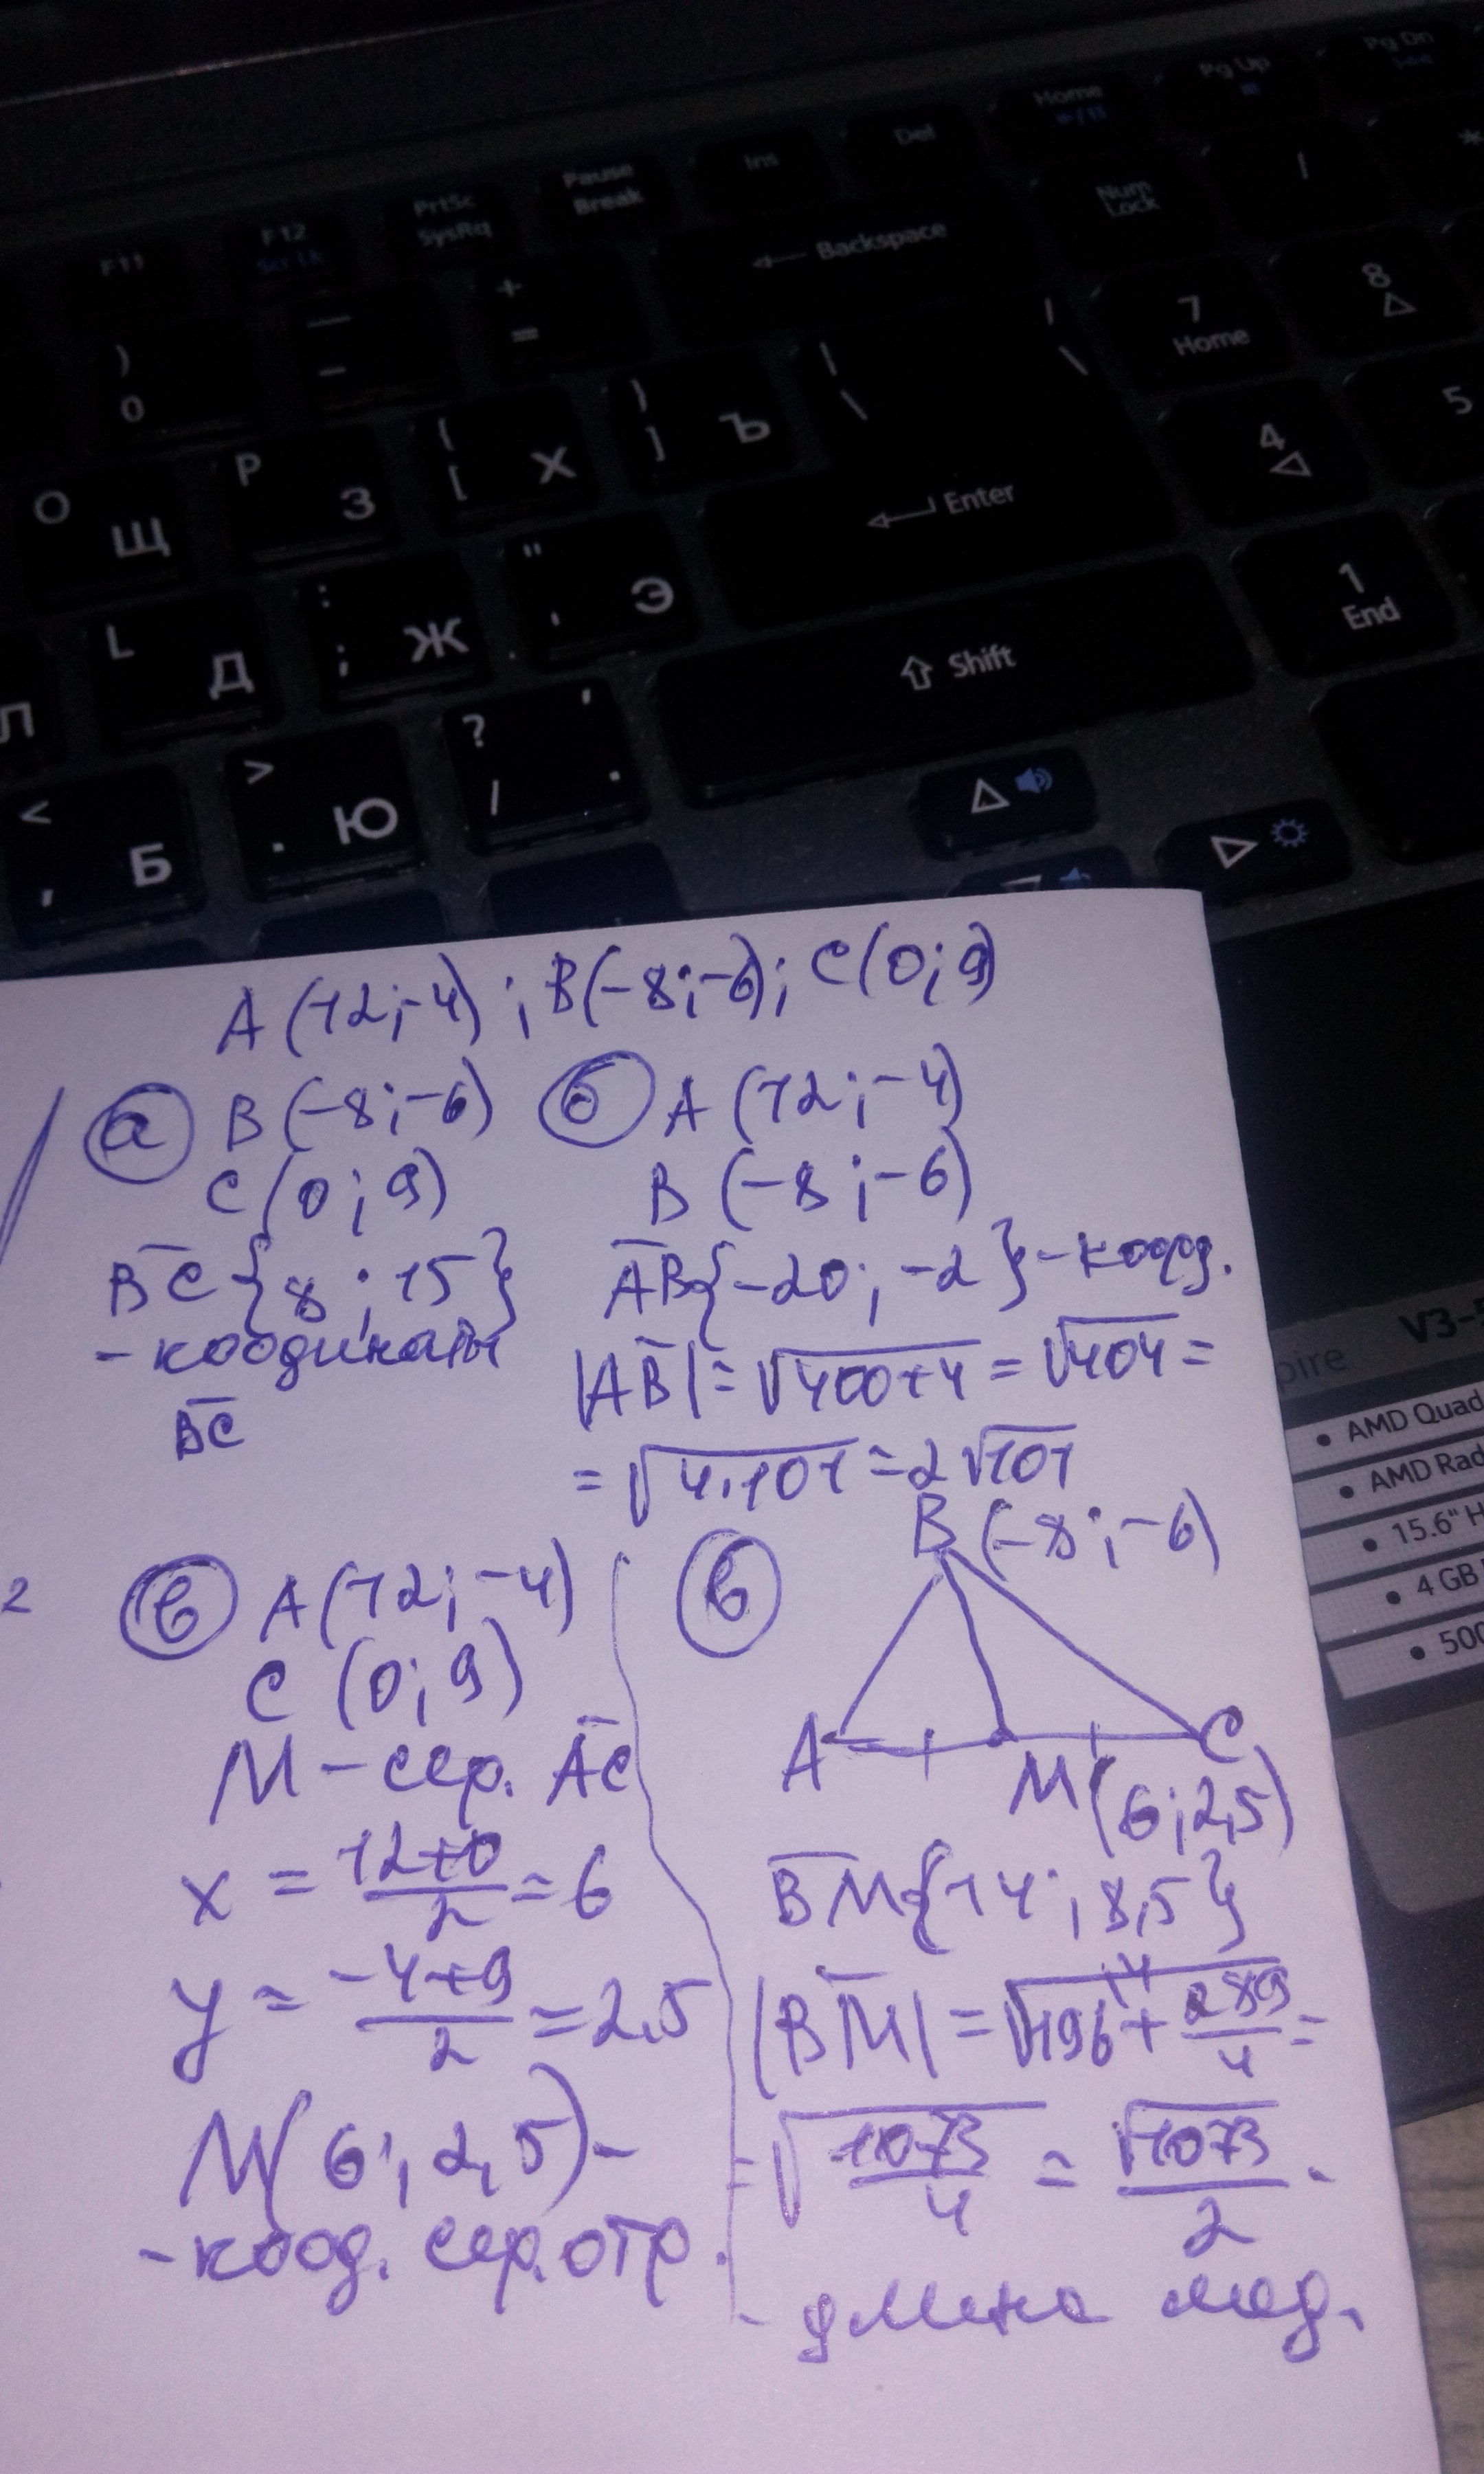 F11 F12 PrtSc Pause Ins Del Home Pg Up Pg Dn
Scr Lk SysRq Break
) 0 — - + = ← Backspace Num Lock / *
O Щ P З { [ Х } ] Ъ | \ | \ 7 Home 8
L Д : ; Ж " ' Э ← Enter 4 5
Л < , Б > . Ю ? / , . Shift 1 End
A(12;-4); B(-8;-6); C(0;9)
а B(-8;-6)
C(0;9)
BC{8;15}
-коодинаты
BC
б A(12;-4)
B(-8;-6)
AB{-20;-2}-коорд.
|AB|=√400+4=√404=
=√4·101=2√101
2
в A(12;-4)
C(0;9)
M-сер. AC
x=12+0/2=6
y=-4+9/2=2,5
M(6;2,5)-
-коод. сер.отр.
в B(-8;-6)
A M(6;2,5) C
BM{14;8,5}
|BM|=√196+289/4=
=√1073/4=√1073/2-
-длина мед.
V3-
pire
• AMD Quad
• AMD Rad
• 15.6" H
• 4 GB
• 500